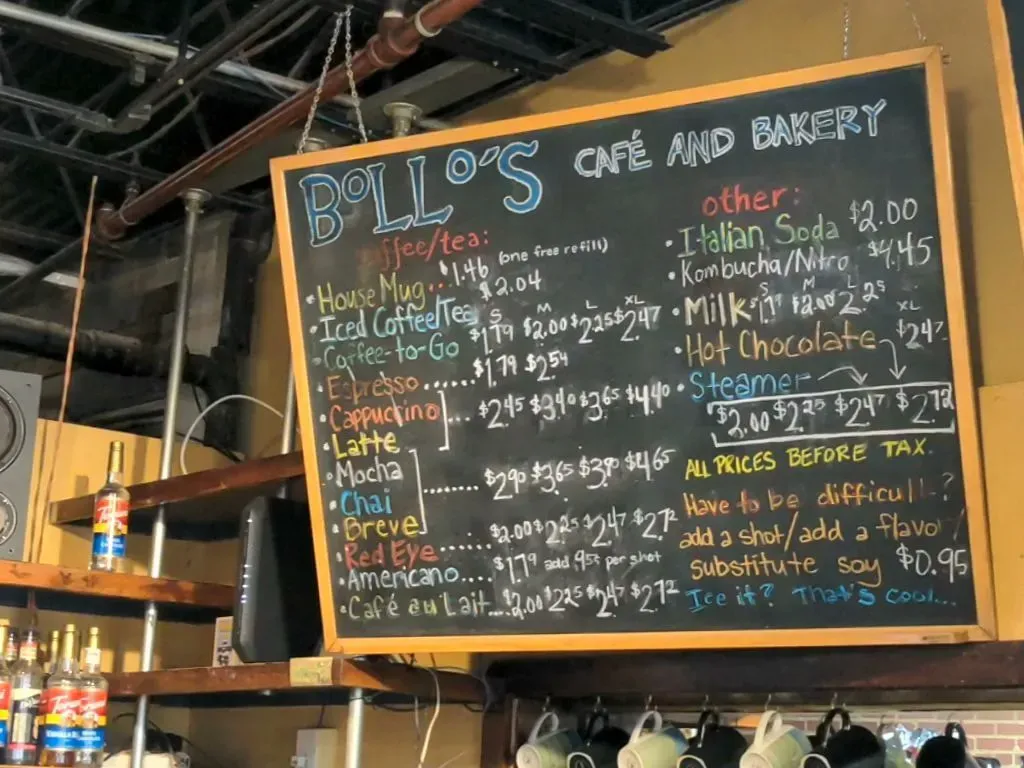 BOLLO'S CAFÉ AND BAKERY
coffee/tea:
• House Mug... $1.46 (one free refill)
• Iced Coffee/Tea $2.04
S M L XL
• Coffee-to-Go $1.79 $2.00 $2.25 $2.47
• Espresso...... $1.79 $2.54
• Cappuccino
• Latte
... $2.45 $3.40 $3.65 $4.40
• Mocha
• Chai
• Breve
........ $2.90 $3.65 $3.90 $4.65
• Red Eye ...... $2.00 $2.25 $2.47 $2.72
• Americano.... $1.79 add .95¢ per shot
• Café au Lait... $2.00 $2.25 $2.47 $2.72
other:
• Italian Soda $2.00
• Kombucha/Nitro $4.45
S M L XL
• Milk $2.00 2.25 $2.47
• Hot Chocolate
• Steamer
$2.00 $2.25 $2.47 $2.72
ALL PRICES BEFORE TAX.
Have to be difficult?
add a shot/add a flavor/
substitute soy $0.95
Ice it? That's cool...